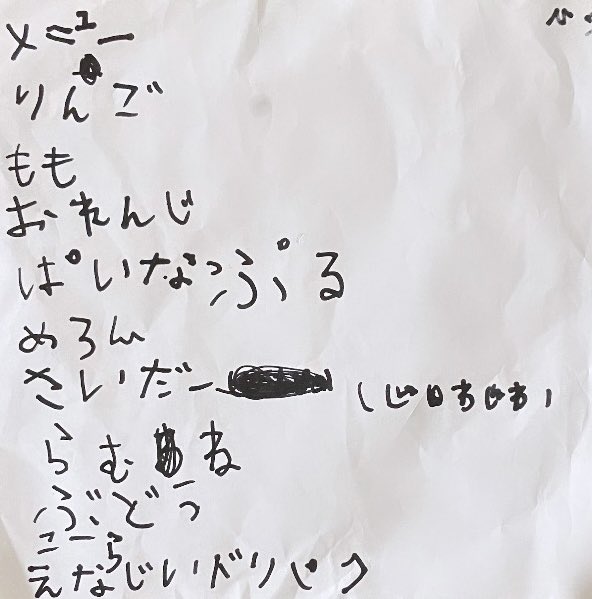 メニュー
りんご
もも
おれんじ
ぱいなっぷる
めろん
さいだー
らむね
ぶどう
こーら
えなじいどりんく